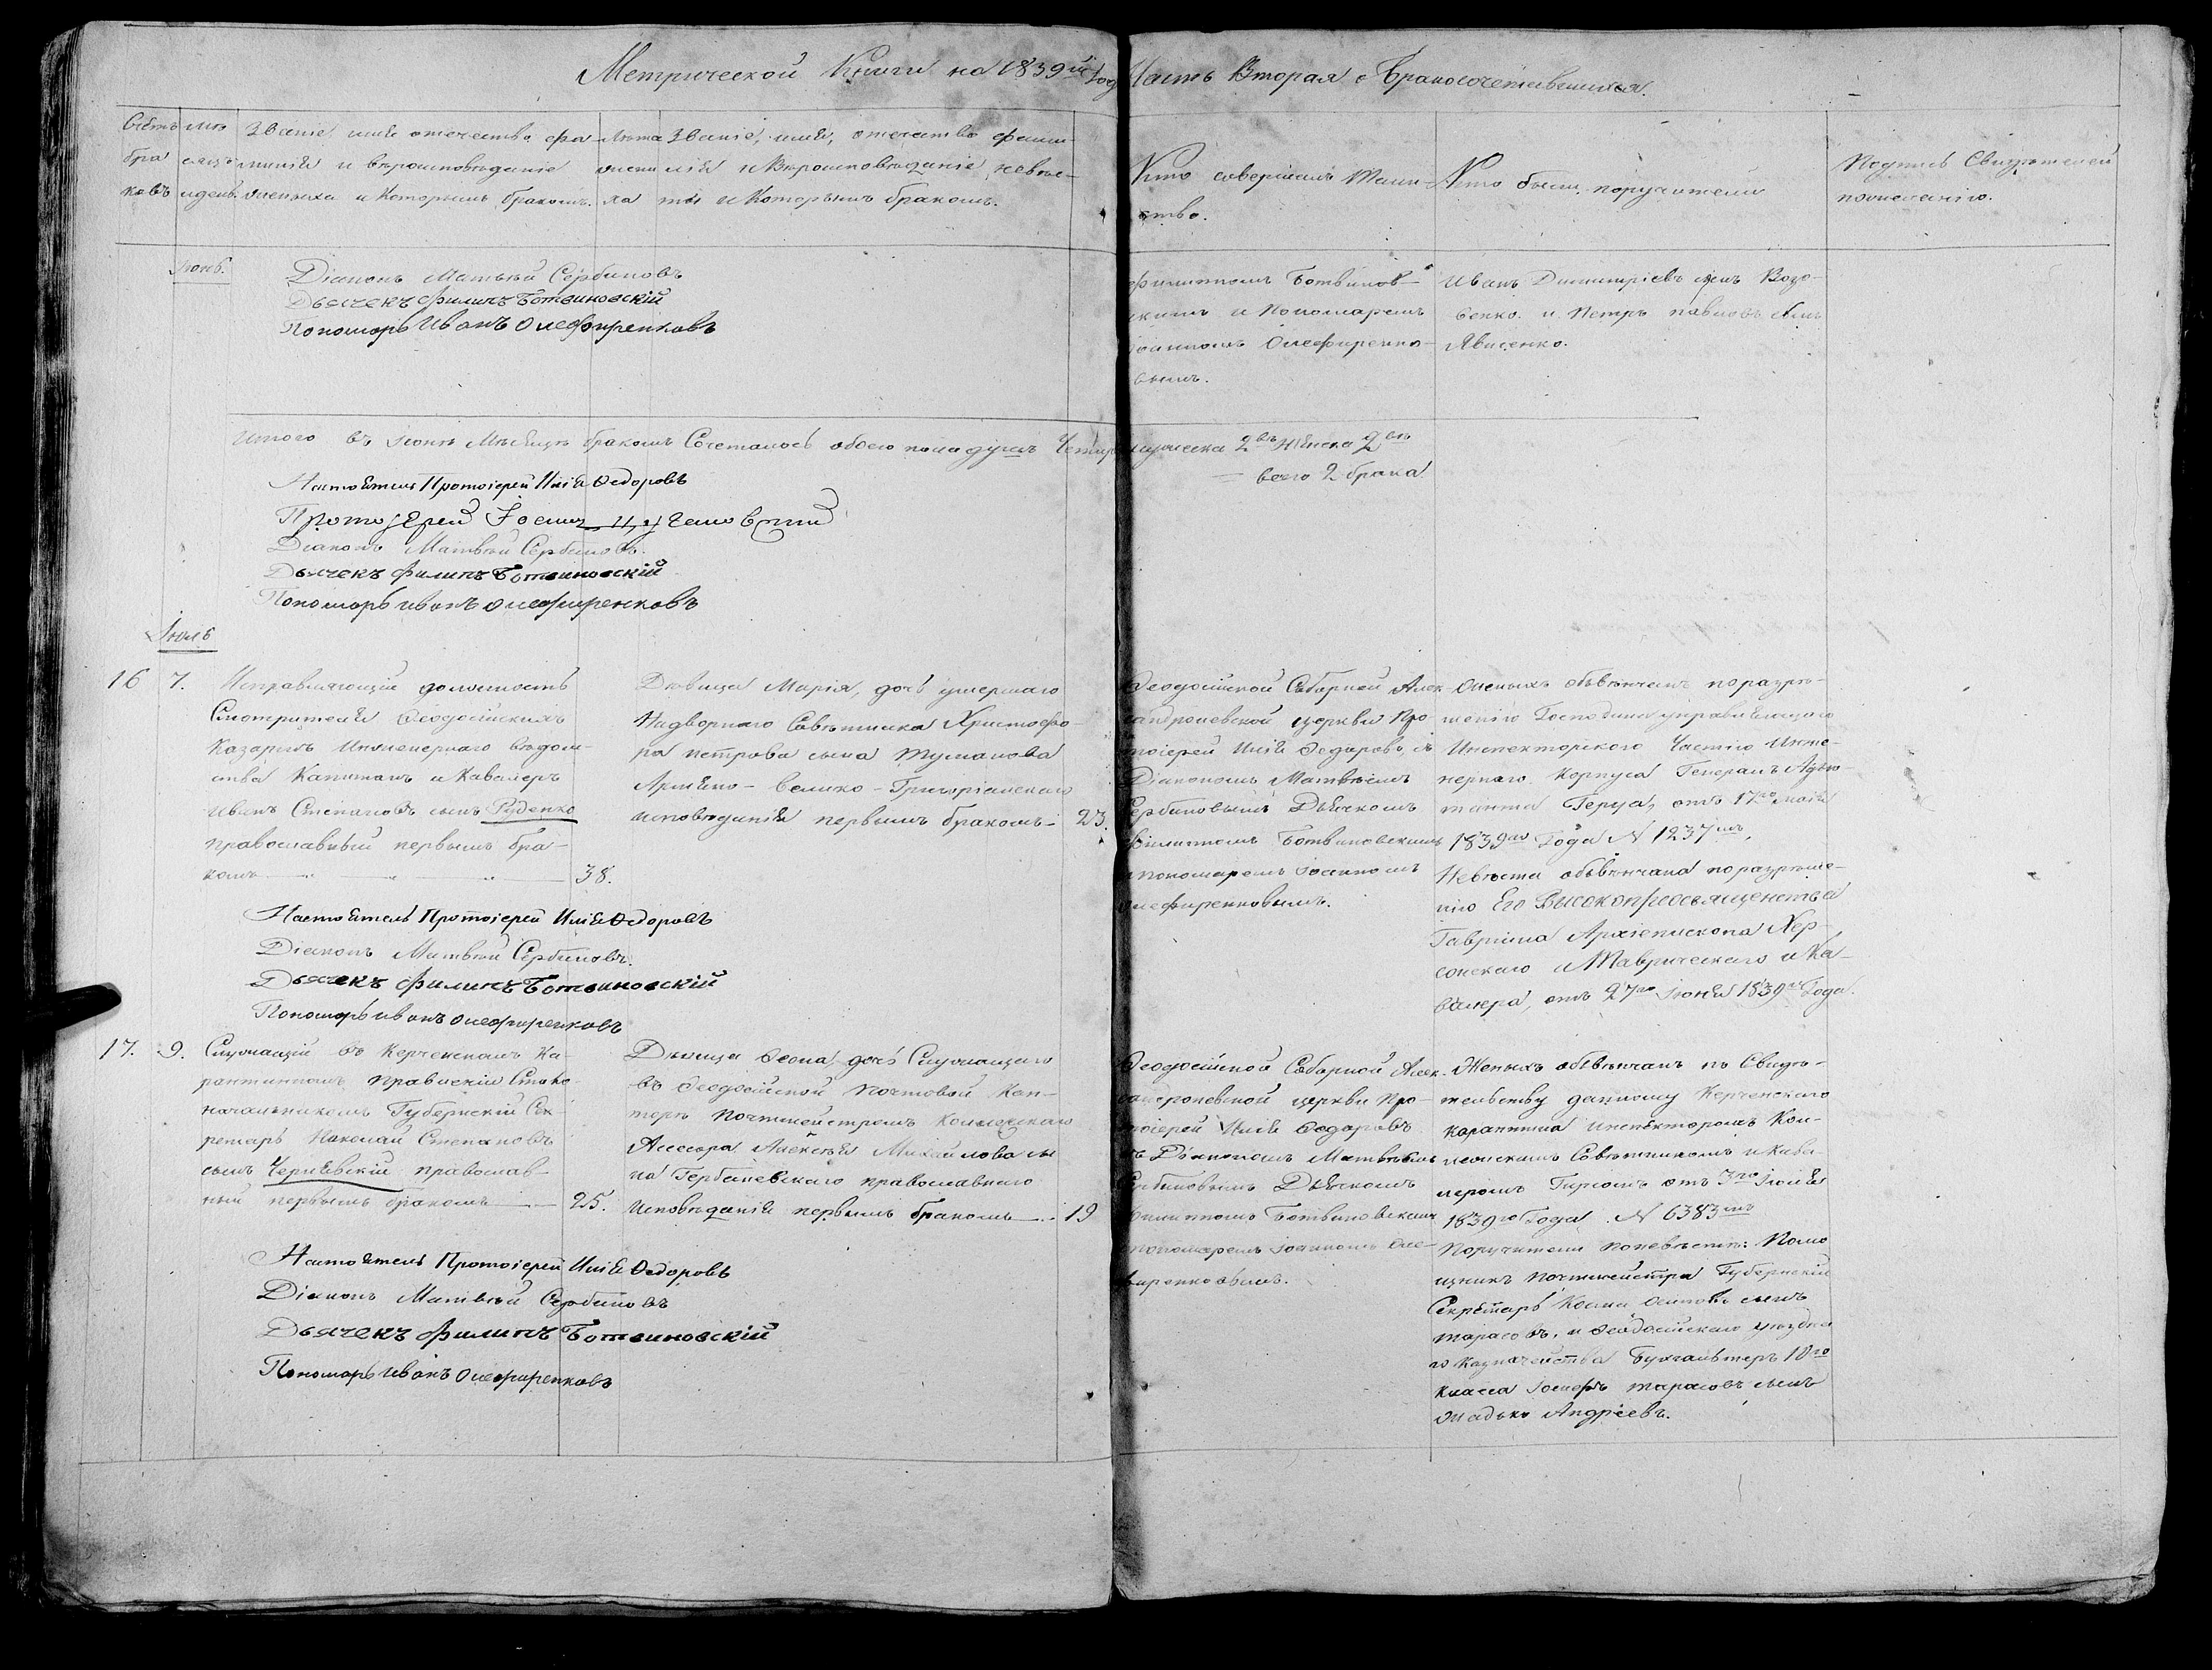 Метрической Книги на 1839й Год Часть Вторая о Бракосочетавшихся.
Счетъ бра ковъ
мѣ сяцъ и день.
Званіе, имя отечество, фа
милія и вѣроисповѣданіе
жениха и Которымъ бракомъ.
Лѣта жени ха
Званіе, имя, отечество фами
лія и Вѣроисповѣданіе невѣс-
ты и Которымъ бракомъ.
Кто совершалъ Таин-
ство.
Кто были поручители
Подпись Свидѣтелей
по желанію.
Іюнь.
Діаконъ Матвѣй Сербиновъ
Дьячекъ Филипъ Ботвиновскій
Пономарь Иванъ Олефиренковъ
Филиппомъ Ботвинов-
скимъ и Пономаремъ
Іоанномъ Олефиренко-
вымъ.
Иванъ Димитріевъ сынъ Возо-
венко. и Петръ павловъ сынъ
Явисенко.
Итого въ Іюнѣ Мѣсяцѣ бракомъ Сочеталось обоего пола душъ Четыре мужеска 2 женска 2
всего 2 брака.
Настоятель Протоіерей Илія Ѳедоровъ
Протоіерей
Діаконъ Матвѣй Сербиновъ.
Дьячекъ Филипъ Ботвиновскій
Пономарь Иванъ Олефиренковъ
Іюль
16
7.
Исправляющій должность
Смотрителя Ѳеодосійскихъ
Казармъ Инженернаго вѣдом-
ства Капитанъ и Кавалеръ
Иванъ Степановъ сынъ Руденко
православный первымъ бра-
комъ 38.
Дѣвица Марія, дочь умершаго
Надворнаго Совѣтника Христофо-
ра петрова сына Туманова
Армяно-Велико-Григоріанскаго
исповѣданія первымъ бракомъ- 23.
Ѳеодосійской Соборной Алек-
сандроневской церкви Про-
тоіерей Илія Ѳедоровъ, съ
Діакономъ Матвѣемъ
Сербиновымъ Дьячкомъ
Филиппомъ Ботвиновскимъ
и пономаремъ Іоанномъ
Олефиренковымъ.
Женихъ обвѣнчанъ по разрѣ-
шенію Господина управляющаго
Инспекторскою Частію Инже-
нернаго Корпуса Генералъ Адъю-
танта Геруа, отъ 17го мая
1839го Года N 1237мъ.
Невѣста обвѣнчана по разрѣше-
нію Его Высокопреосвященства
Гавріила Архіепископа Хер-
сонскаго и Таврическаго и Ка-
валера, отъ 27го Іюня 1839го Года.
Настоятель Протоіерей Илія Ѳедоровъ
Діаконъ Матвѣй Сербиновъ.
Дьячекъ Филипъ Ботвиновскій
Пономарь Иванъ Олефиренковъ
17.
9.
Служащій въ Керченскомъ Ка-
рантинномъ правленіи Столо-
начальникомъ Губернскій Сек-
ретарь Николай Степановъ
сынъ Чернявскій православ-
ный первымъ бракомъ 25.
Дѣвица дочь Служащаго
въ Ѳеодосійской Почтовой Кон-
торѣ Почтмейстремъ Коллежскаго
Ассесора Алексѣя Михайлова сы
на Гербаневскаго православнаго
Исповѣданія первымъ бракомъ 19
Ѳеодосійской Соборной Алек-
сандроневской церкви Про-
тоіерей Илія Ѳедоровъ
съ Діакономъ Матвѣемъ
Сербиновымъ Дьячкомъ
Филиппомъ Ботвиновскимъ
пономаремъ Іоанномъ Оле-
фиренковымъ.
Женихъ обвѣнчанъ по Свидѣ-
тельству данному Керченскаго
карантина Инспекторомъ Кол-
лежскимъ Совѣтникомъ и Кава-
леромъ отъ 3го Іюля
1839го Года. N 6383мъ
Поручители по невѣстѣ: Помо
щникъ почтмейстра Губернскій
Секретарь Косма Осиповъ сынъ
Тарасовъ, и Ѳеодосійскаго уѣздна
го казначейства Бухгалтеръ 10го
класса Іосифъ Тарасовъ сынъ
Андріевъ.
Настоятель Протоіерей Илія Ѳедоровъ
Діаконъ Матвѣй Сербиновъ
Дьячекъ Филипъ Ботвиновскій
Пономарь Иванъ Олефиренковъ